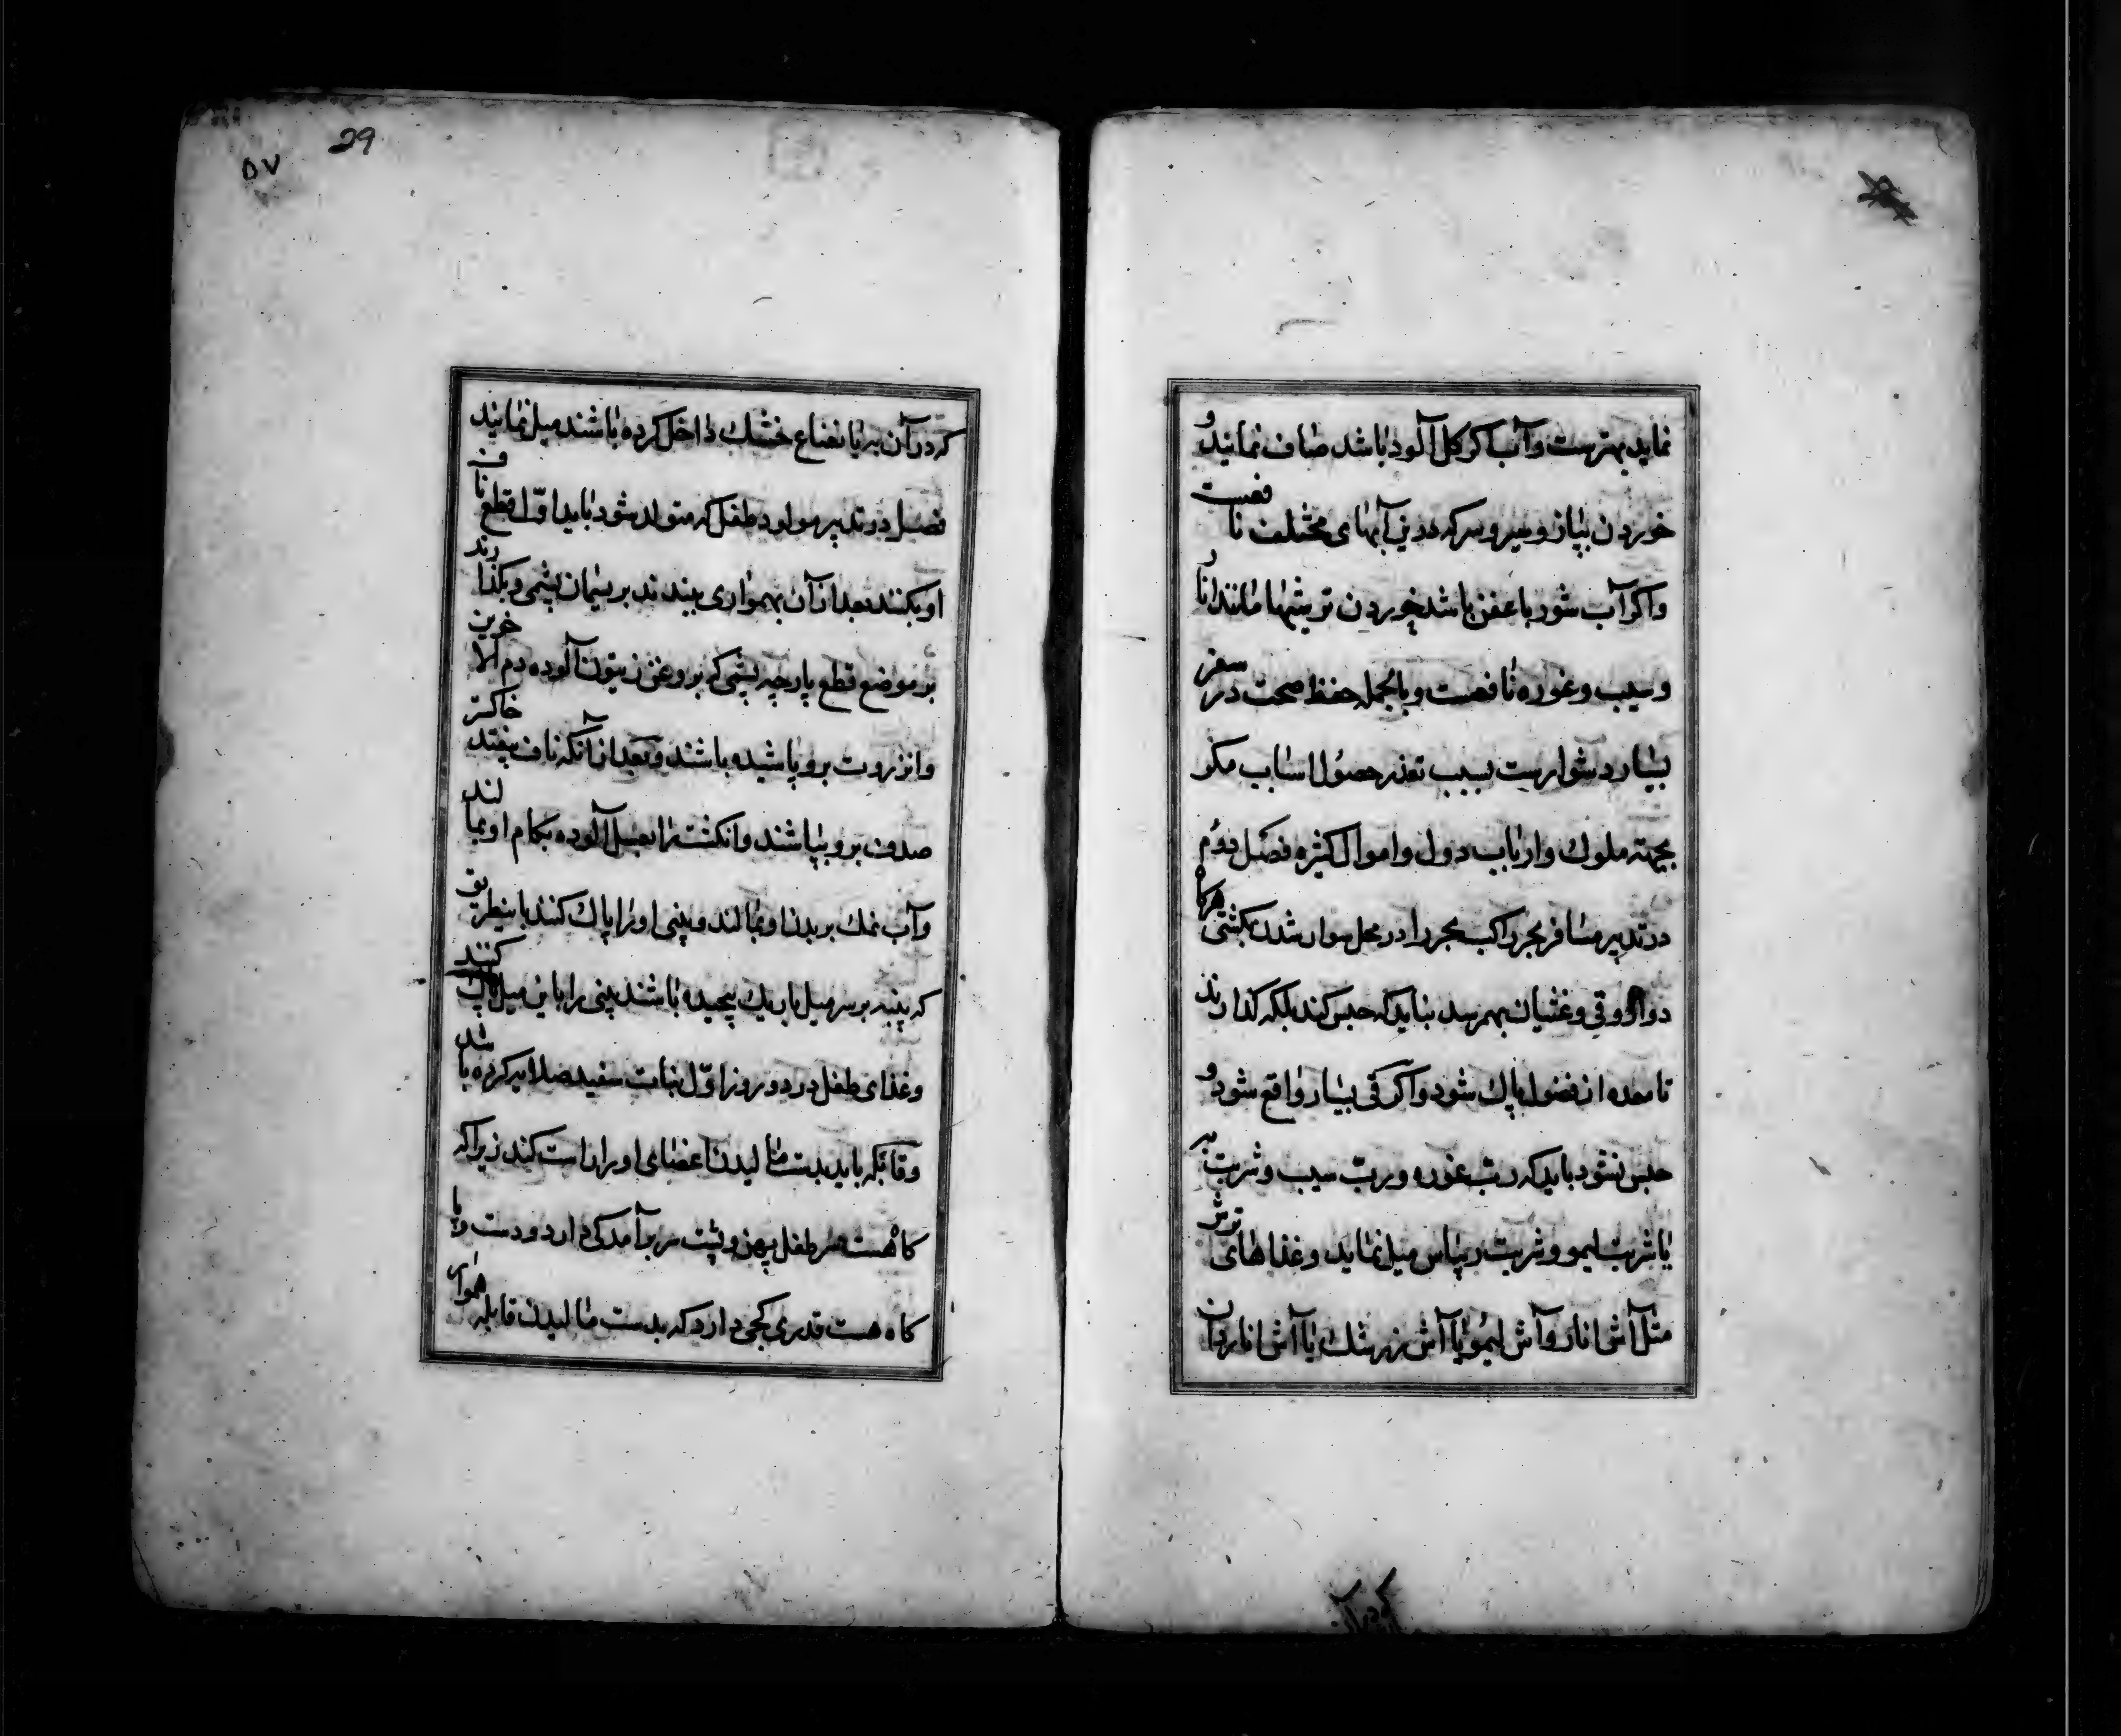 نماید بهترست و آب اگر کل آلود باشد صاف نمایند و
خوردن پیاز و سیر و سرکه در این آبهای مختلف نافعست
و اکر آب شور با عفن باشد خوردن ترشیها مانند انار
و سیب و غوره نافعست و بالجمله حفظ صحت در سفر
بسیار دشوارست بسبب تعذر حصول اسباب مکر
بجهته ملوک و ارباب دول و اموال کثیره فصل دوم
در تدبیر مسافر بحر راکب بحر را در محل سوار شدن بکشتی هرکاه
دوار و قی و غثیان بهم رسد نباید که حبس کند بلکه کذارند
تا معده از فضول پاک شود و اکر قی بسیار واقع شود و
حبس نشود باید که رب غوره و رب سیب و شربت به
یا شربت لیمو و شربت ریباس میل نماید و غذاهای ترش
مثل آش انار و آش لیمو یا آش زرشک یا آش اناردان
که در آن
29
۵۷
که در آن به یا نعناع خشک داخل کرده باشند میل نمایند
فصل در تدبیر مولود طفل که متولد شود باید اول قطع ناف
او بکنند بعد از آن بهمواری ببندند بریسمان پشمی و بکذارند
بر موضع قطع پارچه پشمی که بروغن زیتون آلوده دم الاخوین
و انزروت برو پاشیده باشند و بعد از آنکه ناف بیفتد خاکستر
صدف برو بپاشند و انکشت را بعسل آلوده بکام او بمالند
و آب نمک بر بدن او بمالند و بینی او را پاک کنند باینطریق
که پنبه بر سر میل باریک پیچیده باشند بینی را باین میل پاک کنند
و غذای طفل در دو روز اول نبات سفید صلایه کرده باشد
و قابله باید بدست مالیدن اعضای او را راست کند زیرا که
کاه هست سر طفل پهن و پشت سر برآمدکی دارد و دست و پا
کاه هست قدری کجی دارد که بدست مالیدن قابله هموار